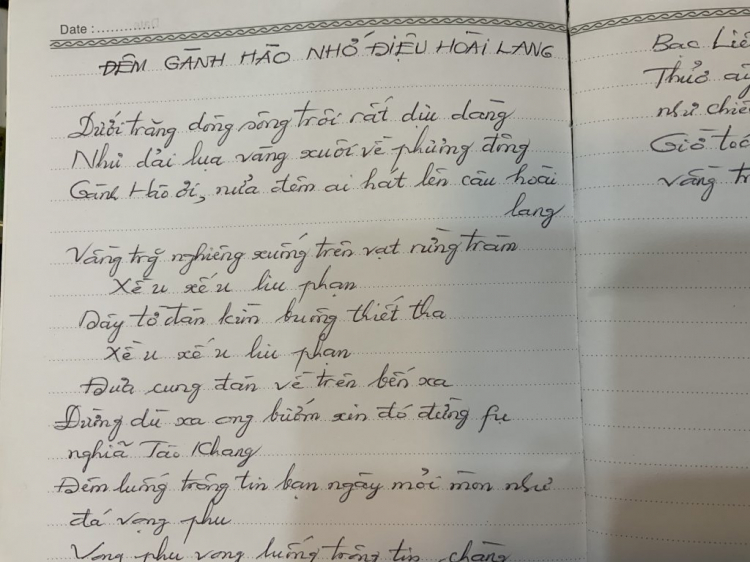 Date :
ĐÊM GÀNH HÀO NHỚ ĐIỆU HOÀI LANG
Dưới trăng dòng sông trôi rất dịu dàng
Như dải lụa vàng xuôi về phương đông
Gành Hào ơi, nửa đêm ai hát lên câu hoài
lang
Vầng trg nghiêng xuống trên vạt rừng tràm
Xề u xế u liu phạn
Dây tơ đàn kìm buông thiết tha
Xề u xế u liu phạn
Đưa cung đàn về trên bến xa
Đường dù xa ong bướm xin đó đừng fụ
nghĩa Tào Khang
Đêm luống trông tin bạn ngày mỏi mòn như
đá vọng phu
Vọng phu vọng luống trông tin chàng
Bac Liê
Thuở
như chiê
Giờ
vầng tr